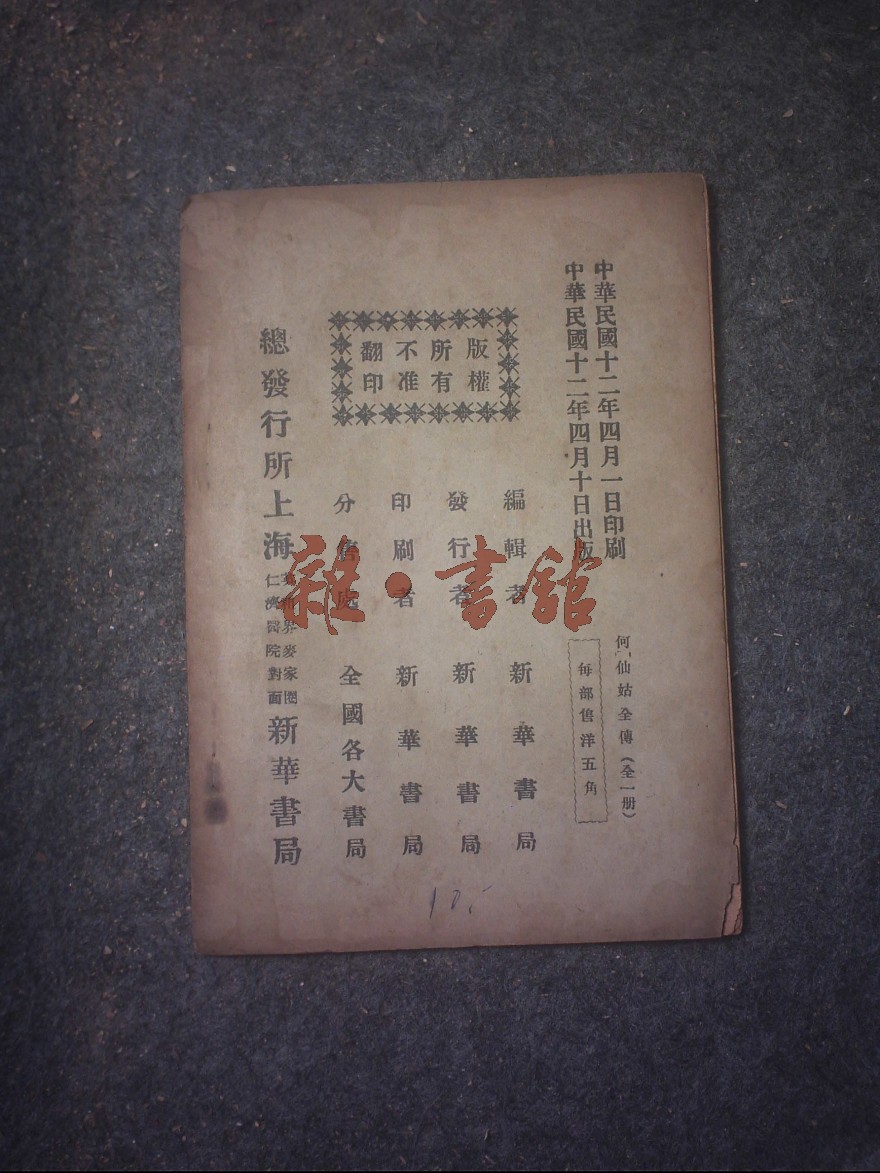 中華民國十二年四月一日印刷
中華民國十二年四月十日出版
何仙姑全傳（全一册）
每部售洋五角
版權
所有
不准
翻印
編輯者 新華書局
發行者 新華書局
印刷者 新華書局
分售處 全國各大書局
總發行所上海
界麥家圈
仁濟醫院對面
新華書局
雜·書館